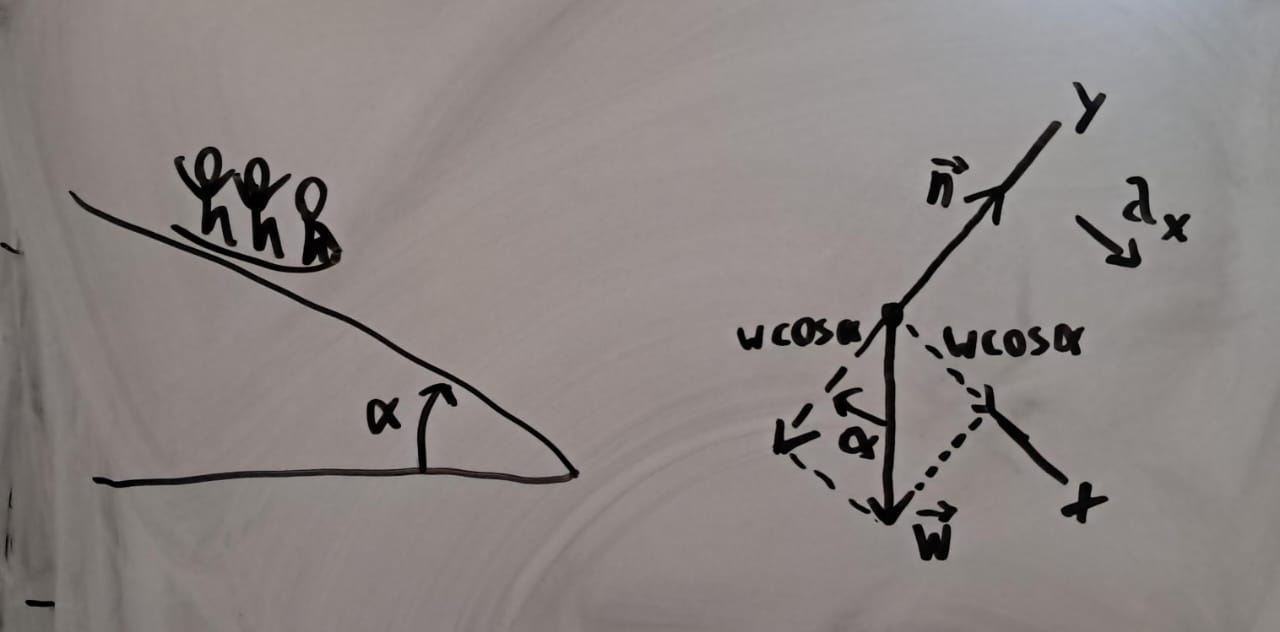 y
n⃗
a x
w cos α
w cos α
α
α
x
w⃗